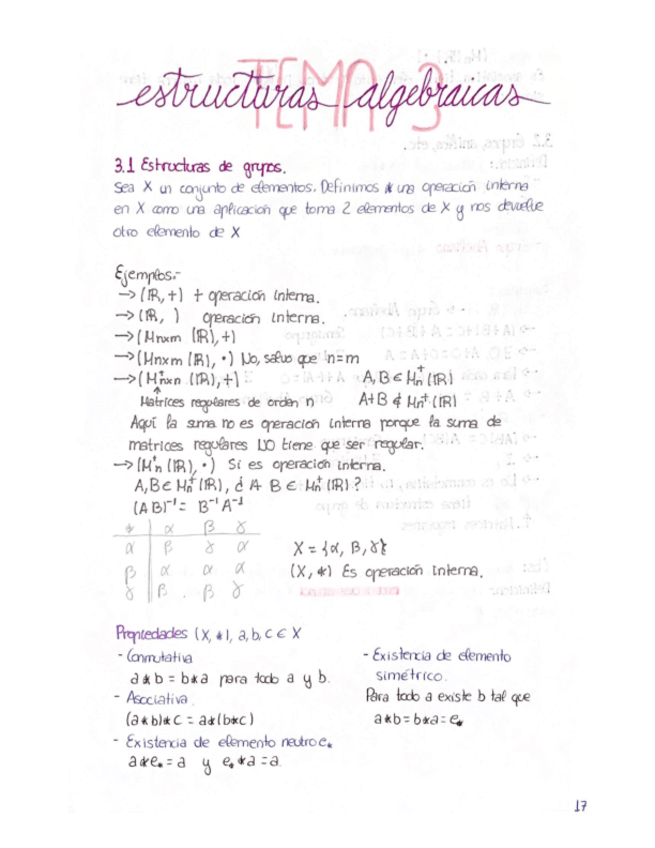 TEMA 3
estructuras algebraicas
3.1 Estructuras de grupos.
Sea X un conjunto de elementos. Definimos * una operación interna
en X como una aplicación que toma 2 elementos de X y nos devuelve
otro elemento de X
Ejemplos.-
→ (ℝ, +) + operación interna.
→ (ℝ, ) operación interna.
→ (Mnxm (ℝ), +)
→ (Mnxm (ℝ), ·) No, salvo que n=m
→ (M⁺nxn (ℝ), +) A, B ∈ Mn⁺ (ℝ)
↑
Matrices regulares de orden n A+B ∉ Mn⁺ (ℝ)
Aquí la suma no es operación interna porque la suma de
matrices regulares NO tiene que ser regular.
→ (M⁺n (ℝ), ·) Si es operación interna.
A, B ∈ Mn⁺ (ℝ), ¿ A B ∈ Mn⁺ (ℝ) ?
(AB)⁻¹ = B⁻¹ A⁻¹
* α β γ
α β γ α
β α α α
γ β β γ
X = {α, β, γ}
(X, *) Es operación interna.
Propiedades (X, *), a, b, c ∈ X
- Conmutativa
a * b = b * a para todo a y b.
- Asociativa.
(a * b) * c = a * (b * c)
- Existencia de elemento neutro e*
a * e* = a y e* * a = a.
- Existencia de elemento
simétrico.
Para todo a existe b tal que
a * b = b * a = e*
17